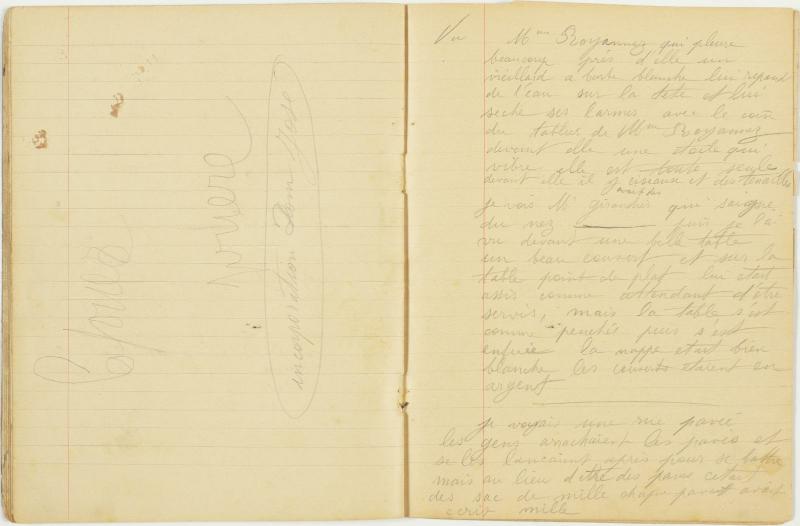 incorporation Dom José
Vu Mme Royannez qui pleure
beaucoup près d'elle un
vieillard a barbe blanche lui repand
de l'eau sur la tete et lui
seche ses larmes avec le coin
du tablier de Mme Royannez
devant elle une étoile qui
vibre elle est toute seule
devant elle il y avait des ciseaux et des tenailles
je vois Mr qui saigne
du nez. puis je l'ai
vu devant une belle table
un beau couvert et sur la
table point de plat lui etait
assis comme attendant d'être
servis, mais la table s'est
comme penchée puis s'est
enfuie la nappe etait bien
blanche les couverts etaient en
argent
je voyais une rue pavée
les gens arrachaient les pavés et
se les lancaient après pour se battre
mais au lieu d'être des pavés cetait
des sac de mille chaque pavet avait
ecrit mille